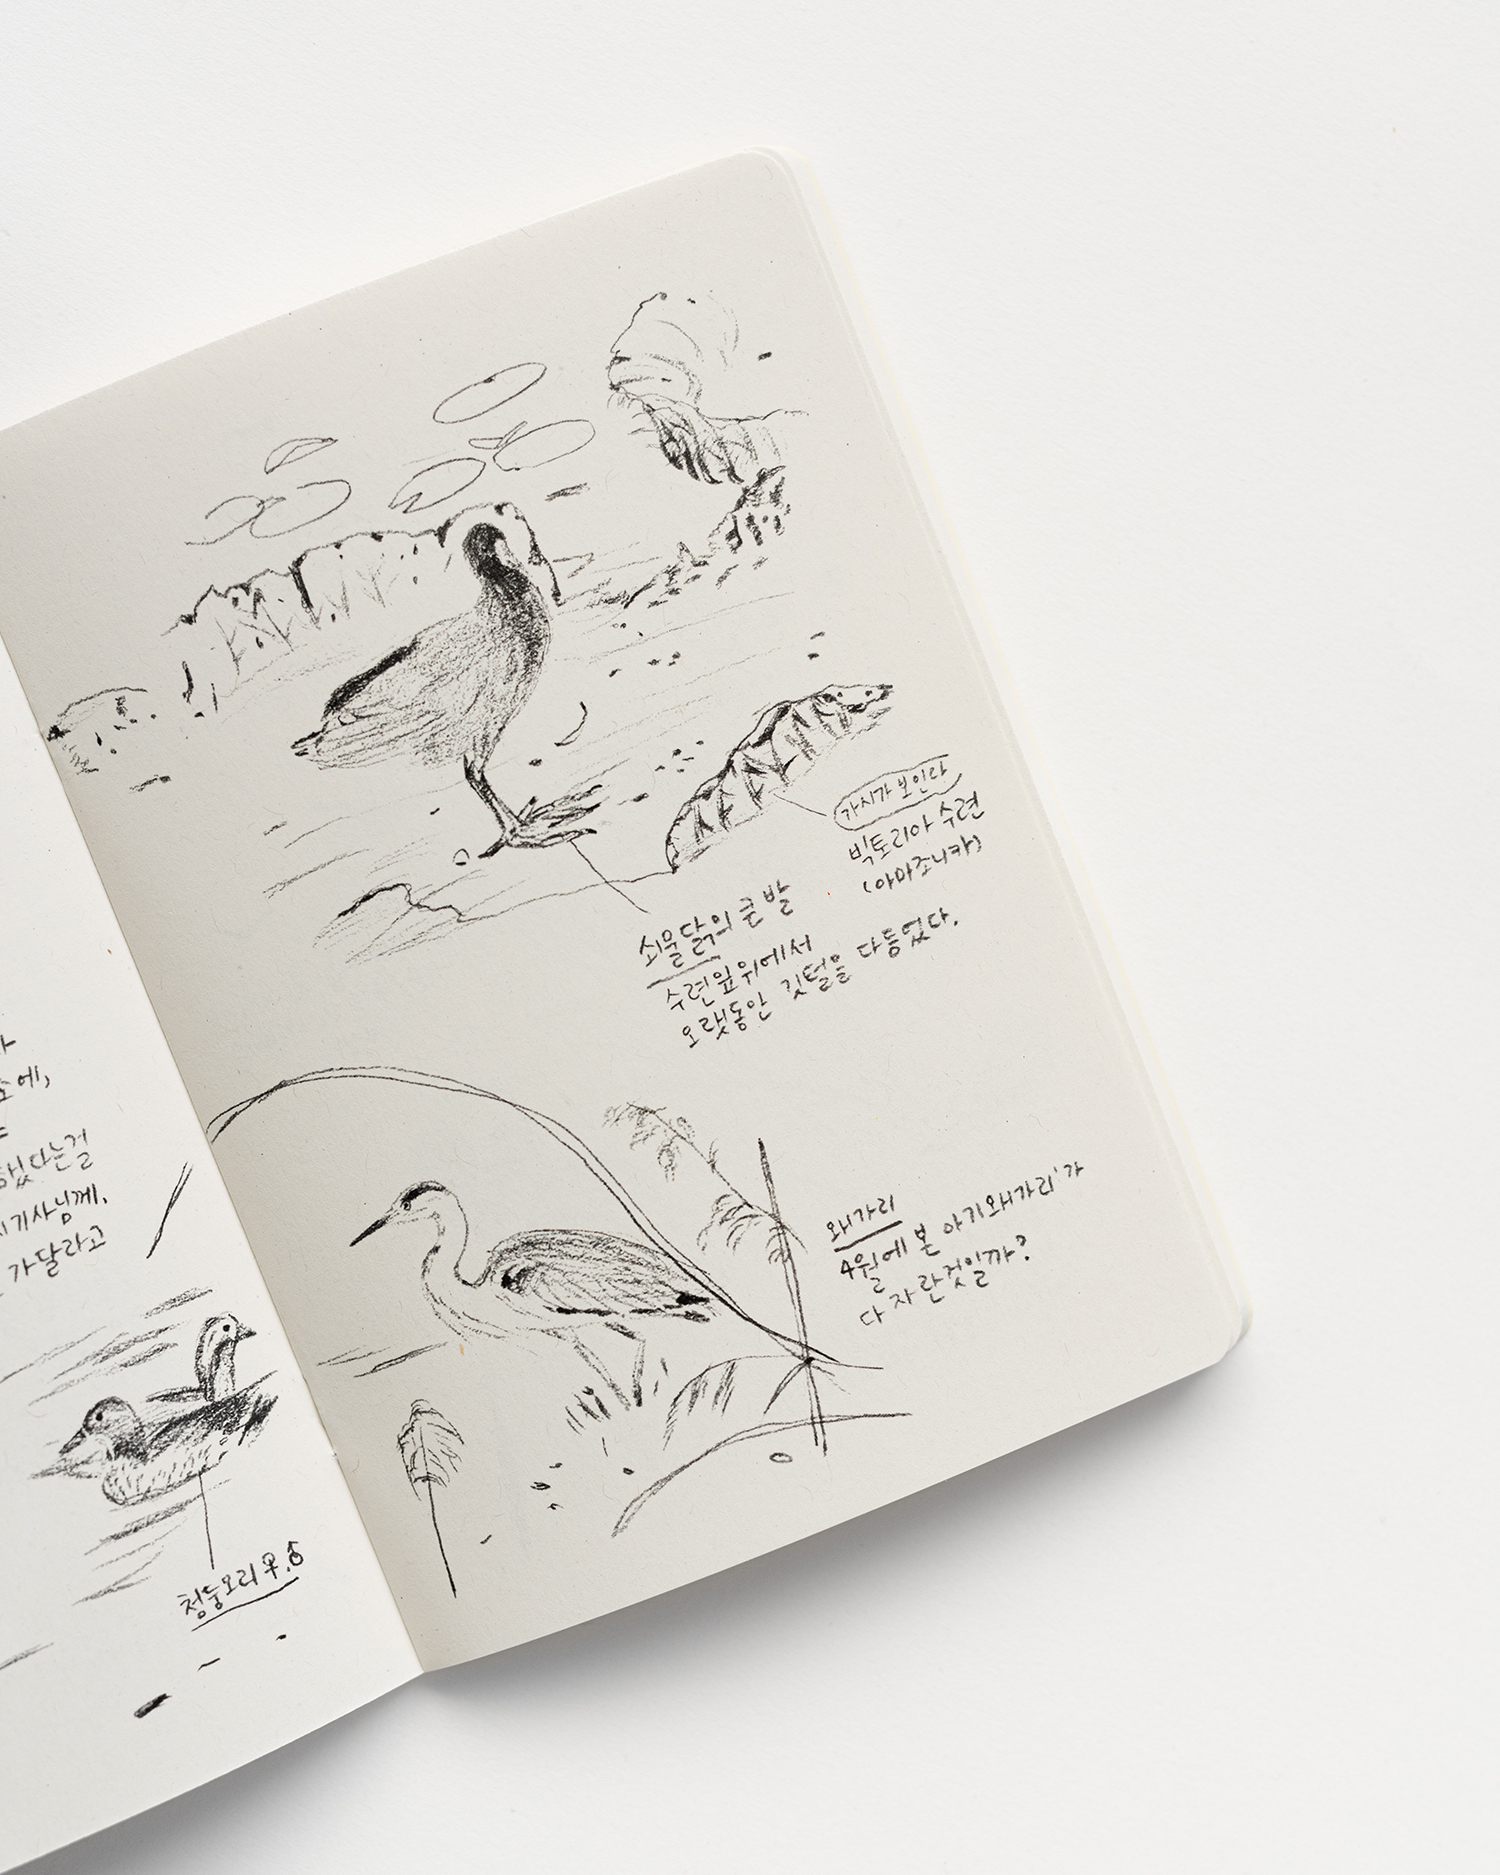 에,
했다는걸
기사님께.
가달라고
청둥오리 우.♂
가시가 보인다
빅토리아 수련
(아마조니카)
쇠물닭의 큰 발
수련잎 위에서
오랫동안 깃털을 다듬었다.
왜가리
4월에 본 아기왜가리'가
다 자란것일까?